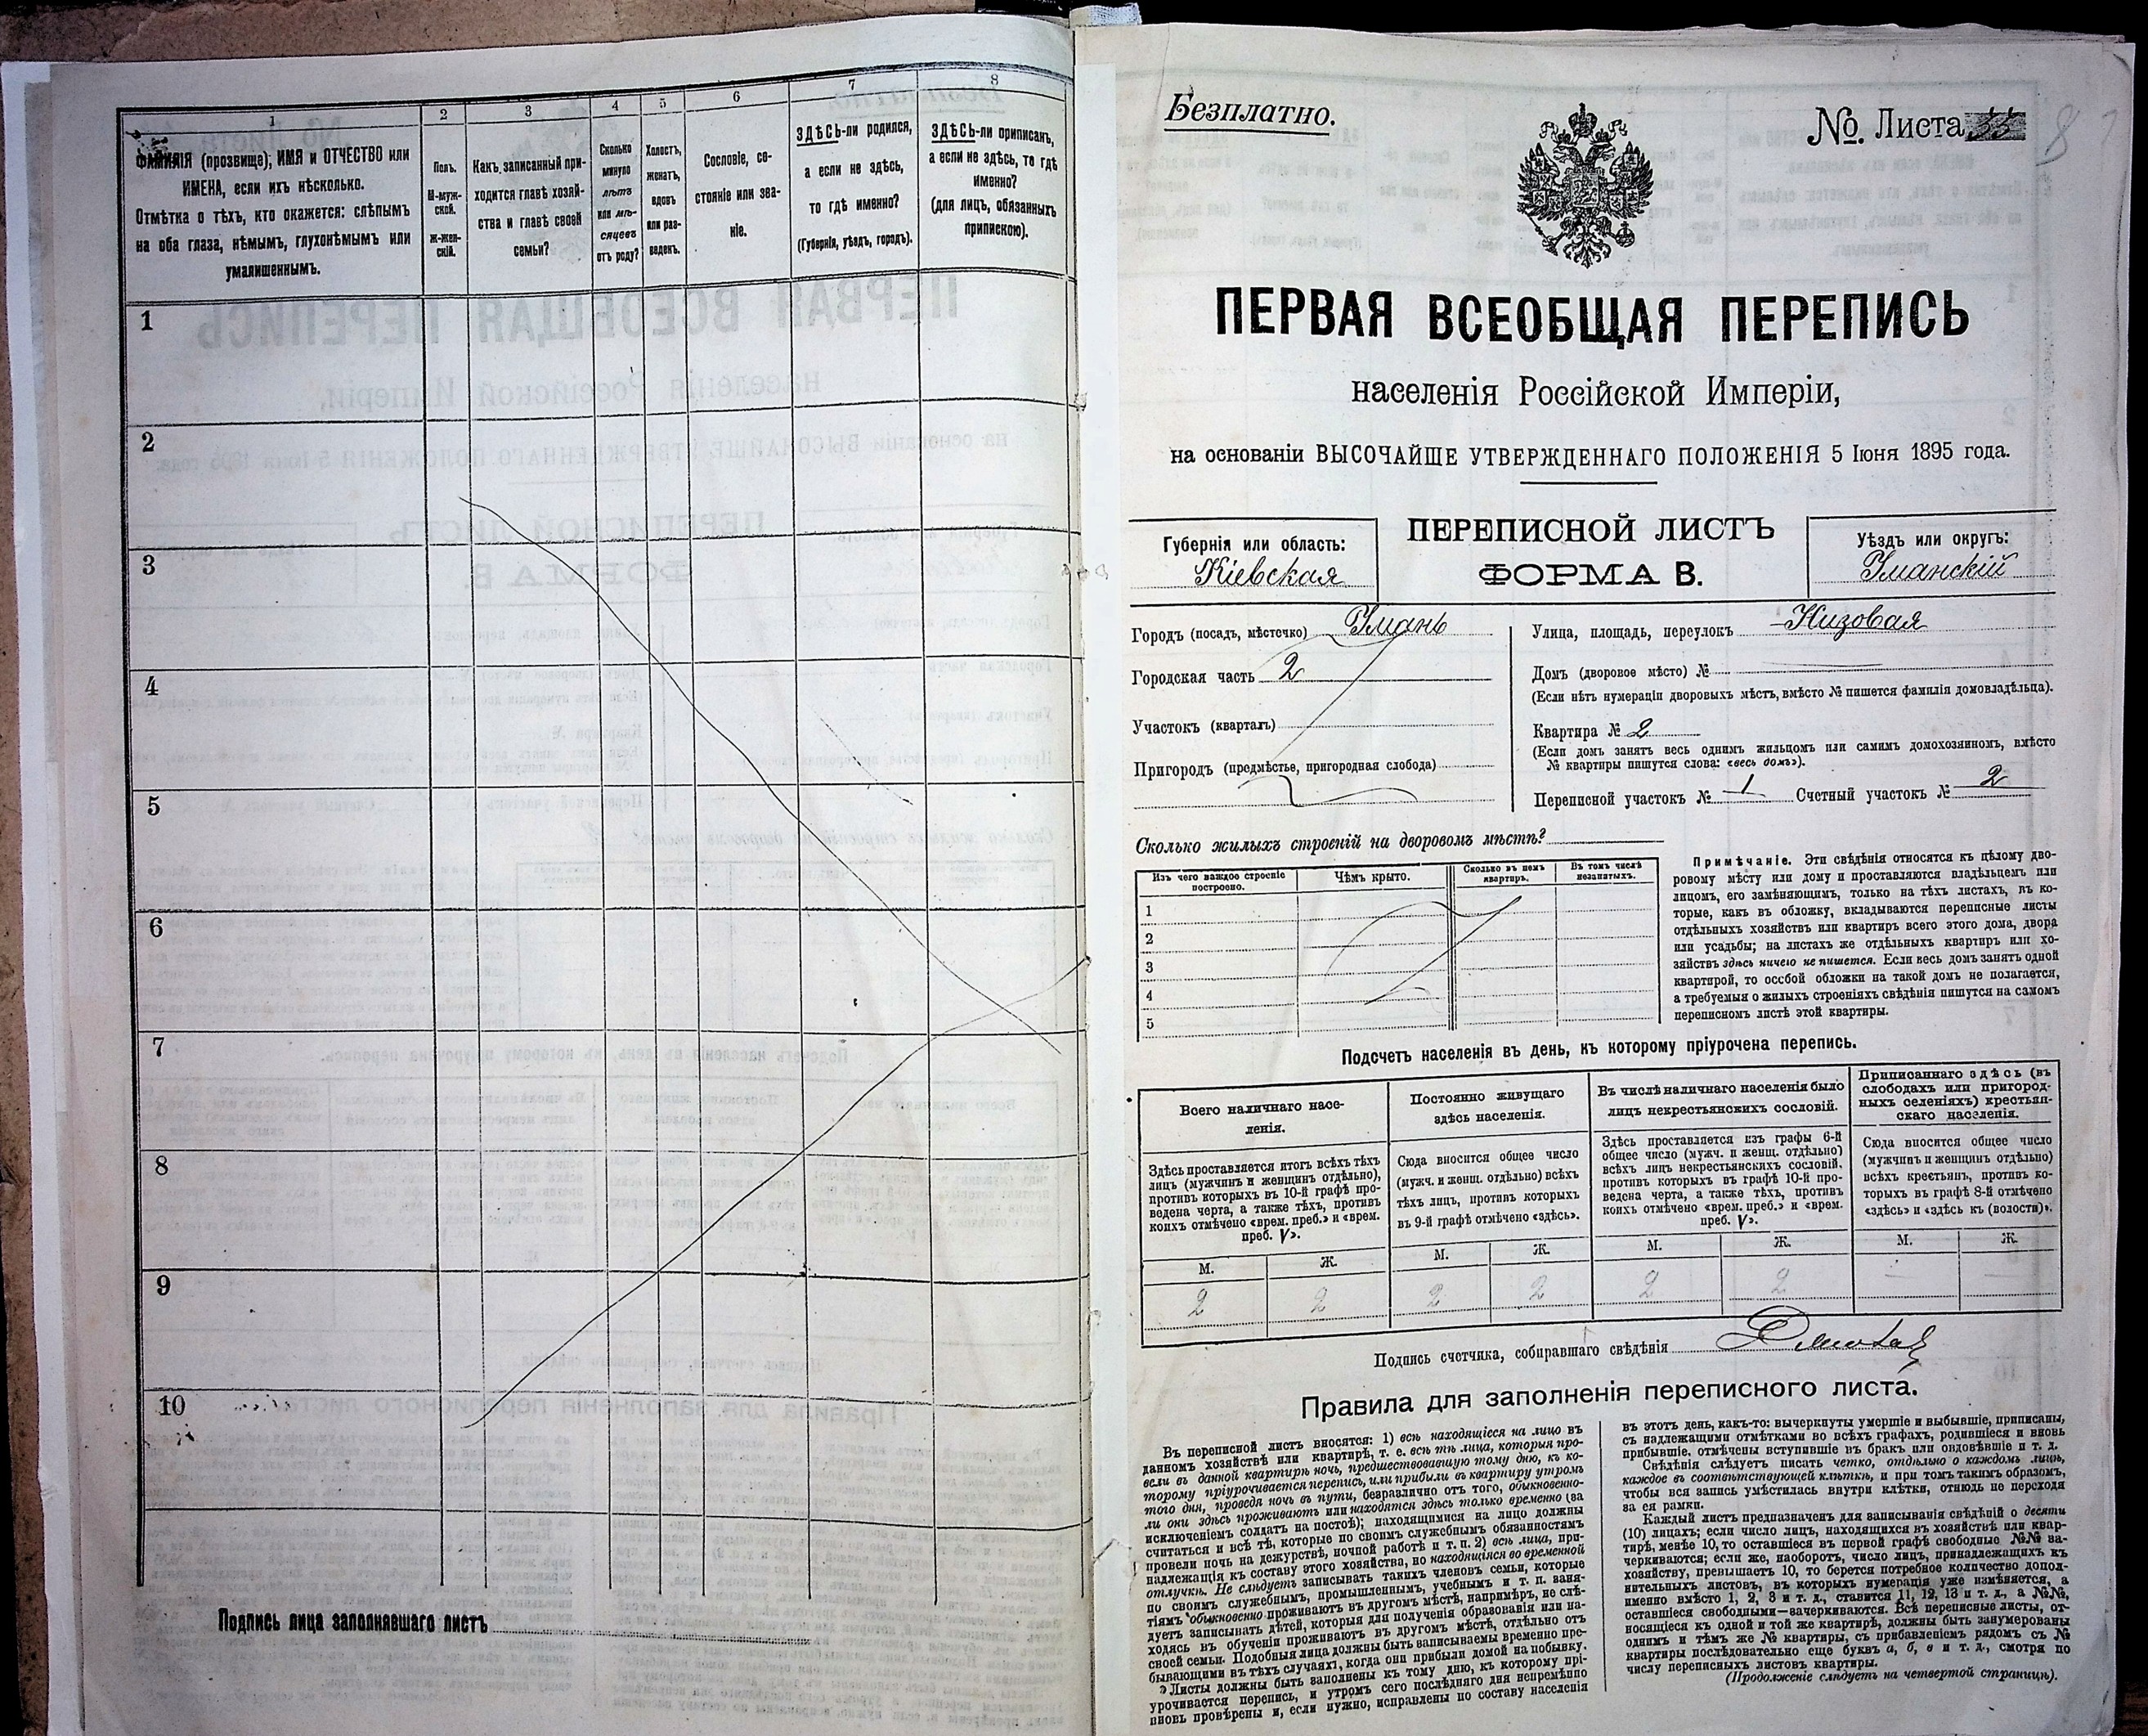 1
2
3
4
5
6
7
8
ФАМИЛІЯ (прозвище), ИМЯ и ОТЧЕСТВО или
ИМЕНА, если ихъ нѣсколько.
Отмѣтка о тѣхъ, кто окажется: слѣпымъ
на оба глаза, нѣмымъ, глухонѣмымъ или
умалишеннымъ.
Полъ.
М-муж-
ской.
Ж-жен-
скій.
Какъ записанный при-
ходится главѣ хозяй-
ства и главѣ своей
семьи?
Сколько
минуло
лѣтъ
или мѣ-
сяцевъ
отъ роду?
Холостъ,
женатъ,
вдовъ
или раз-
веденъ.
Сословіе, со-
стояніе или зва-
ніе.
ЗДѢСЬ-ли родился,
а если не здѣсь,
то гдѣ именно?
(Губернія, уѣздъ, городъ).
ЗДѢСЬ-ли приписанъ,
а если не здѣсь, то гдѣ
именно?
(для лицъ, обязанныхъ
припискою).
1
2
3
4
5
6
7
8
9
10
Подпись лица заполнявшаго листъ
Безплатно.
№. Листа 33
ПЕРВАЯ ВСЕОБЩАЯ ПЕРЕПИСЬ
населенія Россійской Имперіи,
на основаніи ВЫСОЧАЙШЕ УТВЕРЖДЕННАГО ПОЛОЖЕНІЯ 5 Іюня 1895 года.
Губернія или область:
Кіевская
ПЕРЕПИСНОЙ ЛИСТЪ
ФОРМА В.
Уѣздъ или округъ:
Уманскій
Городъ (посадъ, мѣстечко) Умань
Городская часть 2
Участокъ (кварталъ)
Пригородъ (предмѣстье, пригородная слобода)
Улица, площадь, переулокъ Низовая
Домъ (дворовое мѣсто) №
(Если нѣтъ нумераціи дворовыхъ мѣстъ, вмѣсто № пишется фамилія домовладѣльца).
Квартира № 2
(Если домъ занятъ весь однимъ жильцомъ или самимъ домохозяиномъ, вмѣсто
№ квартиры пишутся слова: «весь домъ»).
Переписной участокъ № 1 Счетный участокъ № 2
Сколько жилыхъ строеній на дворовомъ мѣстѣ?
Изъ чего каждое строеніе
построено.
Чѣмъ крыто.
Сколько въ немъ
квартиръ.
Въ томъ числѣ
незанятыхъ.
1
2
3
4
5
Примѣчаніе. Эти свѣдѣнія относятся къ цѣлому дво-
ровому мѣсту или дому и проставляются владѣльцемъ или
лицомъ, его замѣняющимъ, только на тѣхъ листахъ, въ ко-
торые, какъ въ обложку, вкладываются переписные листы
отдѣльныхъ хозяйствъ или квартиръ всего этого дома, двора
или усадьбы; на листахъ же отдѣльныхъ квартиръ или хо-
зяйствъ здѣсь ничего не пишется. Если весь домъ занятъ одной
квартирой, то особой обложки на такой домъ не полагается,
а требуемыя о жилыхъ строеніяхъ свѣдѣнія пишутся на самомъ
переписномъ листѣ этой квартиры.
Подсчетъ населенія въ день, къ которому пріурочена перепись.
Всего наличнаго насе-
ленія.
Постоянно живущаго
здѣсь населенія.
Въ числѣ наличнаго населенія было
лицъ некрестьянскихъ сословій.
Приписаннаго здѣсь (въ
слободахъ или пригород-
ныхъ селеніяхъ) крестьян-
скаго населенія.
Здѣсь проставляется итогъ всѣхъ тѣхъ
лицъ (мужчинъ и женщинъ отдѣльно),
противъ которыхъ въ 10-й графѣ про-
ведена черта, а также тѣхъ, противъ
коихъ отмѣчено «врем. преб.» и «врем.
преб. V».
Сюда вносится общее число
(мужч. и женщ. отдѣльно) всѣхъ
тѣхъ лицъ, противъ которыхъ
въ 9-й графѣ отмѣчено «здѣсь».
Здѣсь проставляется изъ графы 6-й
общее число (мужч. и женщ. отдѣльно)
всѣхъ лицъ некрестьянскихъ сословій,
противъ которыхъ въ графѣ 10-й про-
ведена черта, а также тѣхъ, противъ
коихъ отмѣчено «врем. преб.» и «врем.
преб. V».
Сюда вносится общее число
(мужчинъ и женщинъ отдѣльно)
всѣхъ крестьянъ, противъ ко-
торыхъ въ графѣ 8-й отмѣчено
«здѣсь» и «здѣсь къ (волости)».
М. Ж. М. Ж. М. Ж. М. Ж.
2 2 2 2 2 2 — —
Подпись счетчика, собиравшаго свѣдѣнія
Правила для заполненія переписного листа.
Въ переписной листъ вносятся: 1) всѣ находящіеся на лицо въ
данномъ хозяйствѣ или квартирѣ, т. е. всѣ тѣ лица, которыя про-
вели въ данной квартирѣ ночь, предшествовавшую тому дню, къ ко-
торому пріурочивается перепись, или прибыли въ квартиру утромъ
того дня, проведя ночь въ пути, безразлично отъ того, обыкновенно-
ли они здѣсь проживаютъ или находятся здѣсь только временно (за
исключеніемъ солдатъ на постоѣ); находящимися на лицо должны
считаться и всѣ тѣ, которые по своимъ служебнымъ обязанностямъ
провели ночь на дежурствѣ, ночной работѣ и т. п. 2) всѣ лица, при-
надлежащія къ составу этого хозяйства, но находящіяся во временной
отлучкѣ. Не слѣдуетъ записывать такихъ членовъ семьи, которые
по своимъ служебнымъ, промышленнымъ, учебнымъ и т. п. заня-
тіямъ обыкновенно проживаютъ въ другомъ мѣстѣ, напримѣръ, не слѣ-
дуетъ записывать дѣтей, которыя для полученія образованія или на-
ходясь въ обученіи проживаютъ въ другомъ мѣстѣ, отдѣльно отъ
своей семьи. Подобныя лица должны быть записываемы временно пре-
бывающими въ тѣхъ случаяхъ, когда они прибыли домой на побывку.
Листы должны быть заполнены къ тому дню, къ которому прі-
урочивается перепись, и утромъ сего послѣдняго дня непремѣнно
вновь провѣрены и, если нужно, исправлены по составу населенія
въ этотъ день, какъ-то: вычеркнуты умершіе и выбывшіе, приписаны,
съ надлежащими отмѣтками во всѣхъ графахъ, родившіеся и вновь
прибывшіе, отмѣчены вступившіе въ бракъ или овдовѣвшіе и т. д.
Свѣдѣнія слѣдуетъ писать четко, отдѣльно о каждомъ лицѣ,
каждое въ соотвѣтствующей клѣткѣ, и при томъ такимъ образомъ,
чтобы вся запись умѣстилась внутри клѣтки, отнюдь не переходя
за ея рамки.
Каждый листъ предназначенъ для записыванія свѣдѣній о десяти
(10) лицахъ; если число лицъ, находящихся въ хозяйствѣ или квар-
тирѣ, менѣе 10, то оставшіеся въ первой графѣ свободные №№ за-
черкиваются; если же, наоборотъ, число лицъ, принадлежащихъ къ
хозяйству, превышаетъ 10, то берется потребное количество допол-
нительныхъ листовъ, въ которыхъ нумерація уже измѣняется, а
именно вмѣсто 1, 2, 3 и т. д., ставится 11, 12, 13 и т. д., а №№,
оставшіеся свободными—зачеркиваются. Всѣ переписные листы, от-
носящіеся къ одной и той же квартирѣ, должны быть занумерованы
однимъ и тѣмъ же № квартиры, съ прибавленіемъ рядомъ съ №
квартиры послѣдовательно еще буквъ а, б, в и т. д., смотря по
числу переписныхъ листовъ квартиры.
(Продолженіе слѣдуетъ на четвертой страницѣ).